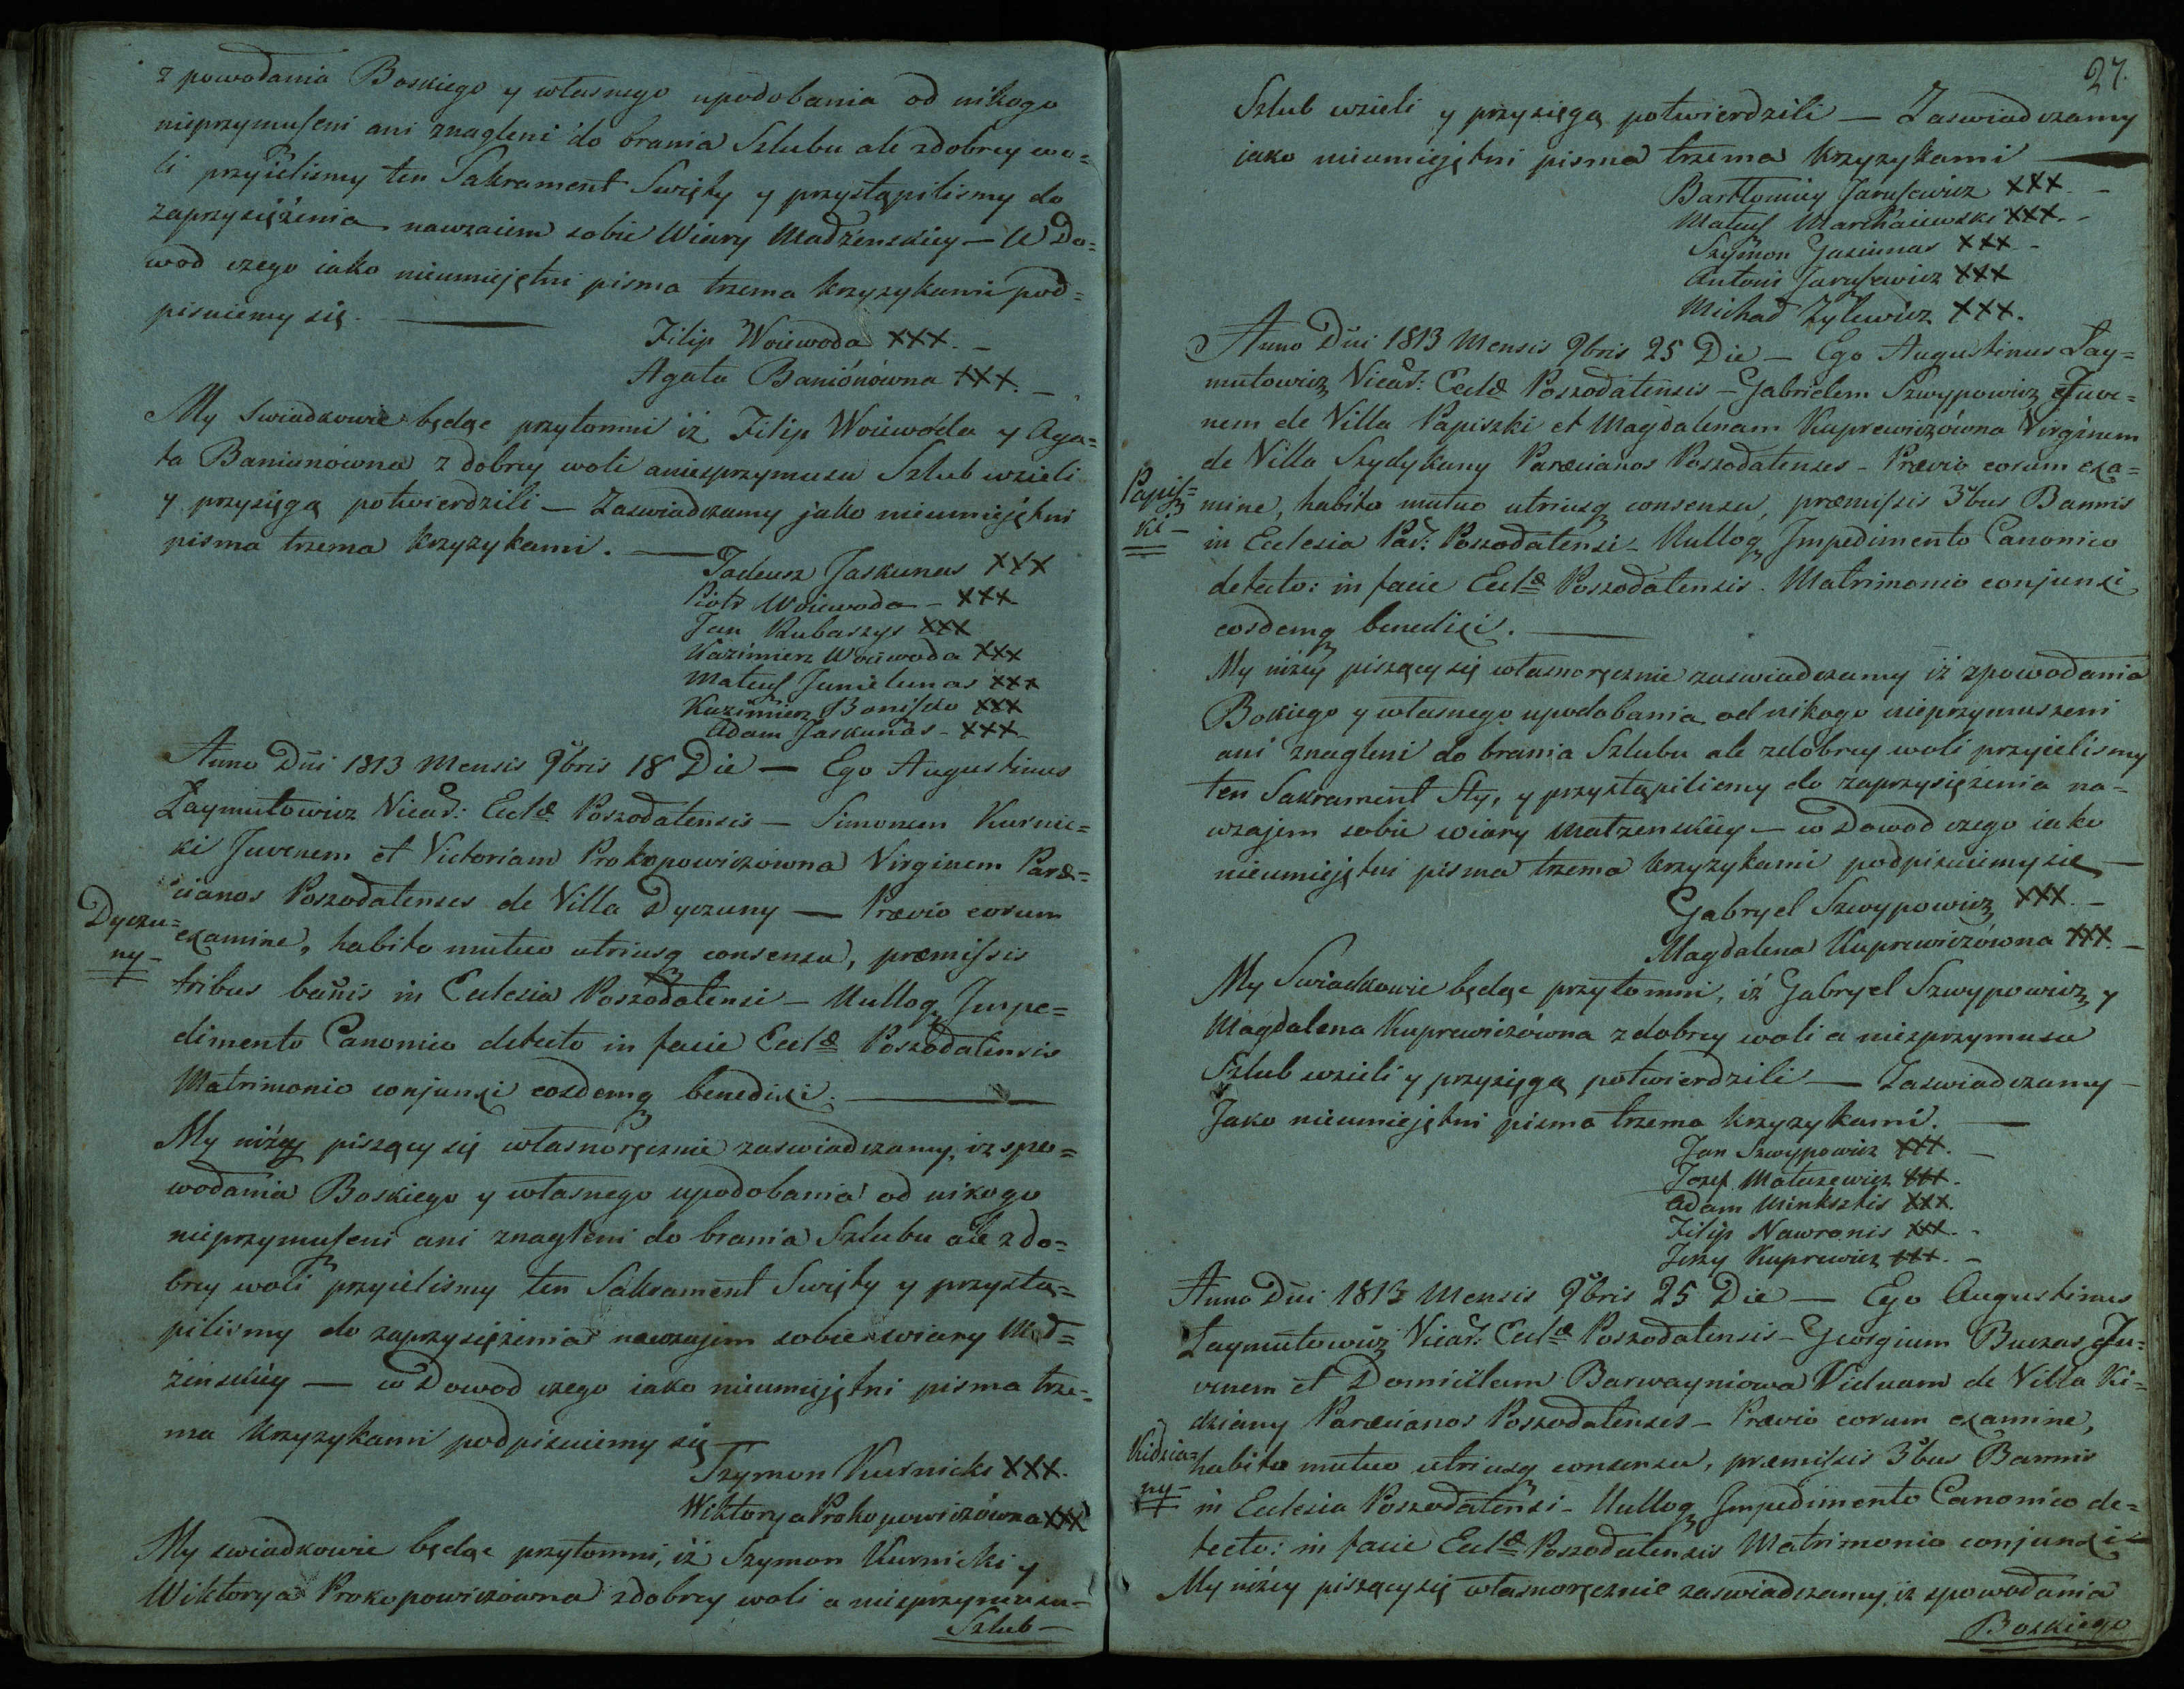 z powodania Boskiego y własnego upodobania od nikogo
nieprzymuszeni ani znagleni do brania Szlubu ale zdobrey wo=
li przyielismy ten Sakrament Swięty y przystąpilismy do
zaprzysiężenia nawzaiem sobie Wiary Małżenskiey — W Do=
wod czego iako nieumiejętni pisma trzema krzyzykami pod=
pisuiemy się. —
Filip Woiewoda XXX. —
Agata Banióńówna XXX. —
My Swiadkowie będąc przytomni iż Filip Woiewoda y Aga=
ta Baniunówna z dobrey woli aniezprzymusu Szlub wzieli
y przysięgą potwierdzili — Zaswiadczamy jako nieumiejętni
pisma trzema krzyzykami. —
Tadeusz Jaskunas XXX
Piotr Woiewoda — XXX
Jan Kubaszys XXX
Kazimierz Woiewoda XXX
Mateusz XXX
Kazimierz XXX
Adam Jaskunas — XXX
Anno Dni 1813 Mensis 9bris 18 Die — Ego Augustinus
Zaymutowicz Vicar: Eclæ Poszodatensis — Simonem Kurnic=
ki Juvenem et Victoriam Prokopowiczówna Virginem Paræ=
cianos Poszodatenses de Villa Dyczuny — Prævio eorum
Dyczu=
ny —
examine, habito mutuo utriusq consensu, præmissis
tribus bannis in Eclesia Poszodatensi — Nulloq Impe=
dimento Canonico detecto in facie Eclæ Poszodatensis
Matrimonio conjunxi eosdemq benedixi. —
My niżey piszący się własnoręcznie zaswiadczamy, iz spo=
wodania Boskiego y własnego upodobania od nikogo
nieprzymuszeni ani znagleni do brania Szlubu ale zdo=
brey woli przyielismy ten Sakrament Swięty y przystą=
pilismy do zaprzysiężenia nawzajem sobie wiary Mał=
żenskiey — w Dowod czego iako nieumiejętni pisma trze=
ma krzyzykami podpisuiemy się —
Szymon Kurnicki XXX.
Wiktorya Prokopowiczówna XXX
My swiadkowie będąc przytomni, iż Szymon Kurnicki y
Wiktorya Prokopowiczówna zdobrey woli a niezprzymusu =
Szlub —
27.
Szlub wzieli y przysięgą potwierdzili — Zaswiadczamy
jako nieumiejętni pisma trzema krzyzykami —
Bartłomiey Jarusewicz XXX. —
Mateusz XXX. —
Szymon Gasiunas XXX —
Antoni Jarusewicz XXX
Michał Żylewicz XXX.
Anno Dni 1813 Mensis 9bris 25 Die — Ego Augustinus Zay=
mutowicz Vicar: Eclæ Poszodatensis — Gabrielem Szwypowicz Juve=
nem de Villa Papiszki et Magdalenam Kuprewiczówna Virginem
de Villa Szydykany Paræcianos Poszodatenses — Prævio eorum exa=
Papisz=
ki —
mine, habito mutuo utriusq consensu, præmissis 3bus Bannis
in Eclesia Par: Poszodatensi — Nulloq Impedimento Canonico
detecto: in facie Eclæ Poszodatensis. Matrimonio conjunxi
eosdemq benedixi. —
My niżey piszący się własnoręcznie zaswiadczamy iż zpowodania
Bokiego y własnego upodobania od nikogo nieprzymuszeni
ani znagleni do brania Szlubu ale zdobrey woli przyielismy
ten Sakrament Sty, y przystąpilismy do zaprzysiężenia na=
wzajem sobie wiary Małzenskiey — w Dowod czego iako
nieumiejętni pisma trzema krzyzykami podpisuiemy się —
Gabryel Szwypowicz XXX. —
Magdalena Kuprewiczówna XXX. —
My Swiadkowie będąc przytomni, iż Gabryel Szwypowicz y
Magdalena Kuprewiczówna z dobrey woli a niezprzymusu
Szlub wzieli y przysięgą potwierdzili — Zaswiadczamy —
Jako nieumiejętni pisma trzema krzyzykami. —
Jan Szwypowicz XXX. —
Jozef Matuzewicz XXX.
Adam Minksztis XXX.
Filip Nawronis XXX. —
Jerzy Kuprewicz XXX. —
Anno Dni 1813 Mensis 9bris 25 Die — Ego Augustinus
Zaymutowicz Vicar: Eclæ Poszodatensis — Georgium Buczas Ju=
venem et Domicellam Barwayniowa Viduam de Villa Ki=
dziany Paræcianos Poszodatenses — Prævio eorum examine,
Kidzia=
ny —
habito mutuo utriusq consensu, præmissis 3bus Bannis
in Eclesia Poszodatensi — Nulloq Impedimento Canonico de=
tecto: in facie Eclæ Poszodatensis Matrimonio conjunxi —
My niżey piszący się własnoręcznie zaswiadczamy, iz spowodania
Boskiego